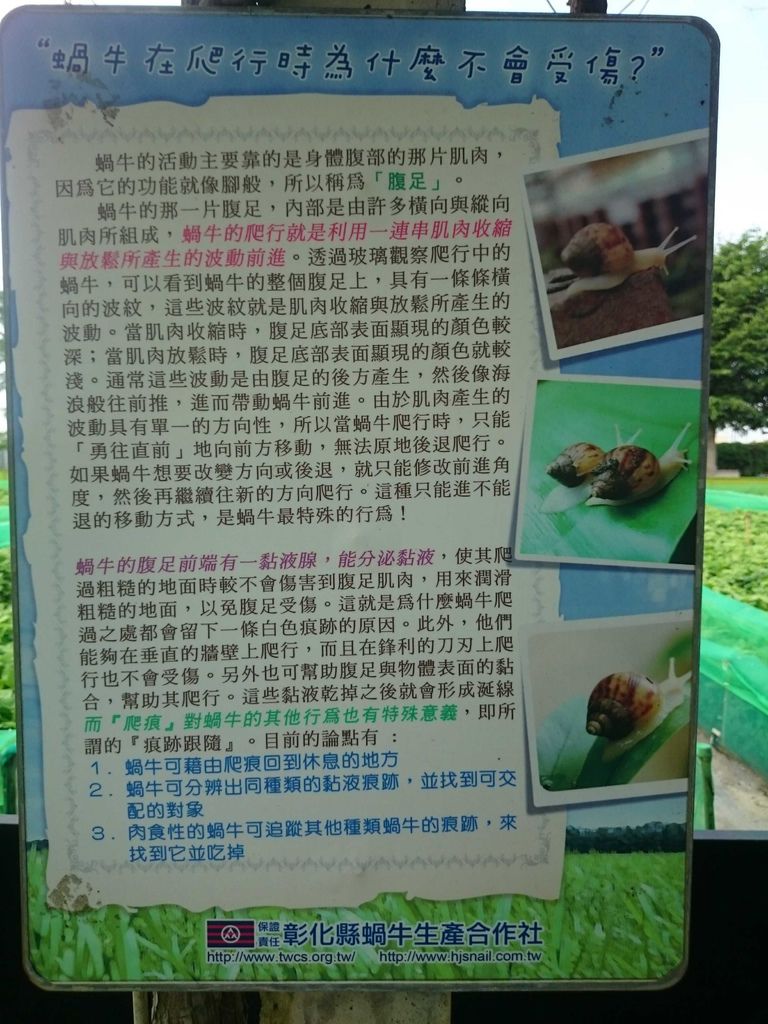 “蝸牛在爬行時為什麼不會受傷？”
蝸牛的活動主要靠的是身體腹部的那片肌肉，
因爲它的功能就像腳般，所以稱爲「腹足」。
蝸牛的那一片腹足，內部是由許多橫向與縱向
肌肉所組成，蝸牛的爬行就是利用一連串肌肉收縮
與放鬆所產生的波動前進。透過玻璃觀察爬行中的
蝸牛，可以看到蝸牛的整個腹足上，具有一條條橫
向的波紋，這些波紋就是肌肉收縮與放鬆所產生的
波動。當肌肉收縮時，腹足底部表面顯現的顏色較
深；當肌肉放鬆時，腹足底部表面顯現的顏色就較
淺。通常這些波動是由腹足的後方產生，然後像海
浪般往前推，進而帶動蝸牛前進。由於肌肉產生的
波動具有單一的方向性，所以當蝸牛爬行時，只能
「勇往直前」地向前方移動，無法原地後退爬行。
如果蝸牛想要改變方向或後退，就只能修改前進角
度，然後再繼續往新的方向爬行。這種只能進不能
退的移動方式，是蝸牛最特殊的行爲！
蝸牛的腹足前端有一黏液腺，能分泌黏液，使其爬
過粗糙的地面時較不會傷害到腹足肌肉，用來潤滑
粗糙的地面，以免腹足受傷。這就是爲什麼蝸牛爬
過之處都會留下一條白色痕跡的原因。此外，他們
能夠在垂直的牆壁上爬行，而且在鋒利的刀刃上爬
行也不會受傷。另外也可幫助腹足與物體表面的黏
合，幫助其爬行。這些黏液乾掉之後就會形成涎線
而『爬痕』對蝸牛的其他行爲也有特殊意義，即所
謂的『痕跡跟隨』。目前的論點有：
1. 蝸牛可藉由爬痕回到休息的地方
2. 蝸牛可分辨出同種類的黏液痕跡，並找到可交
配的對象
3. 肉食性的蝸牛可追蹤其他種類蝸牛的痕跡，來
找到它並吃掉
保證責任 彰化縣蝸牛生產合作社
http://www.twcs.org.tw/ http://www.hjsnail.com.tw